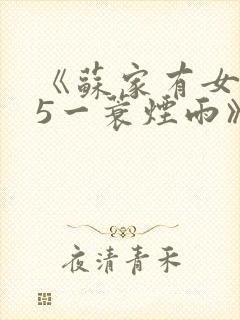 《蘇家有女
5一蓑煙雨》
夜清青禾